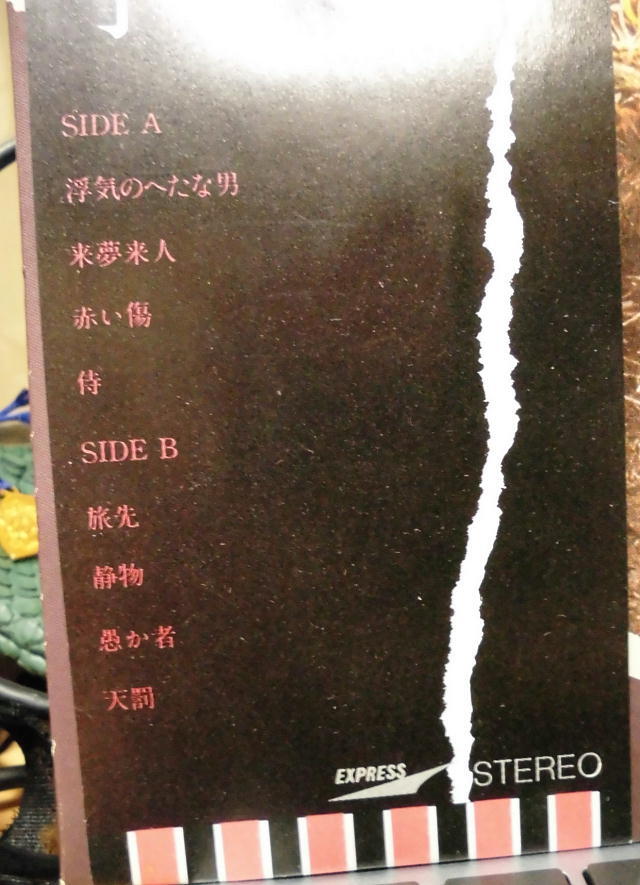 SIDE A
浮気のへたな男
来夢来人
赤い傷
侍
SIDE B
旅先
静物
愚か者
天罰
EXPRESS STEREO